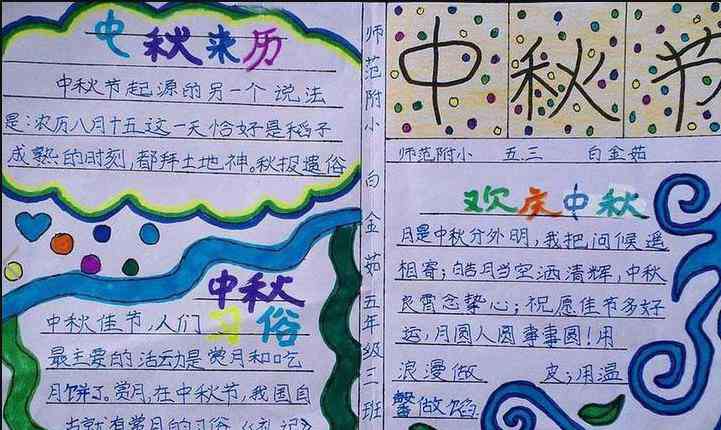 中秋来历
中秋节起源的另一个说法
是:农历八月十五这一天恰好是稻子
成熟的时刻,都拜土地神。秋报遗俗
中秋
习俗
中秋佳节,人们
最主要的活动是赏月和吃
月饼了。赏月,在中秋节,我国自
古就有赏月的习俗《礼记》
师范附小 白金茹 五年级三班
中秋节
师范附小 五.三 白金茹
欢庆中秋
月是中秋分外明,我把问候遥
相寄;皓月当空洒清辉,中秋
良宵念挚心;祝愿佳节多好
运,月圆人圆事事圆!用
浪漫做 皮;用温
馨做馅